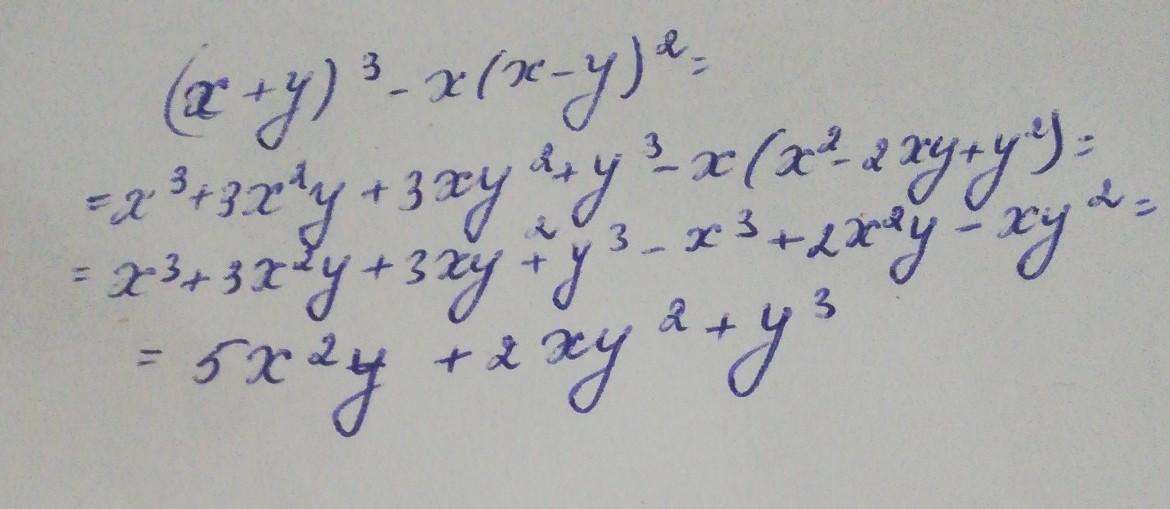 (x+y)³-x(x-y)²=
=x³+3x²y+3xy²+y³-x(x²-2xy+y²)=
=x³+3x²y+3xy²+y³-x³+2x²y-xy²=
=5x²y+2xy²+y³